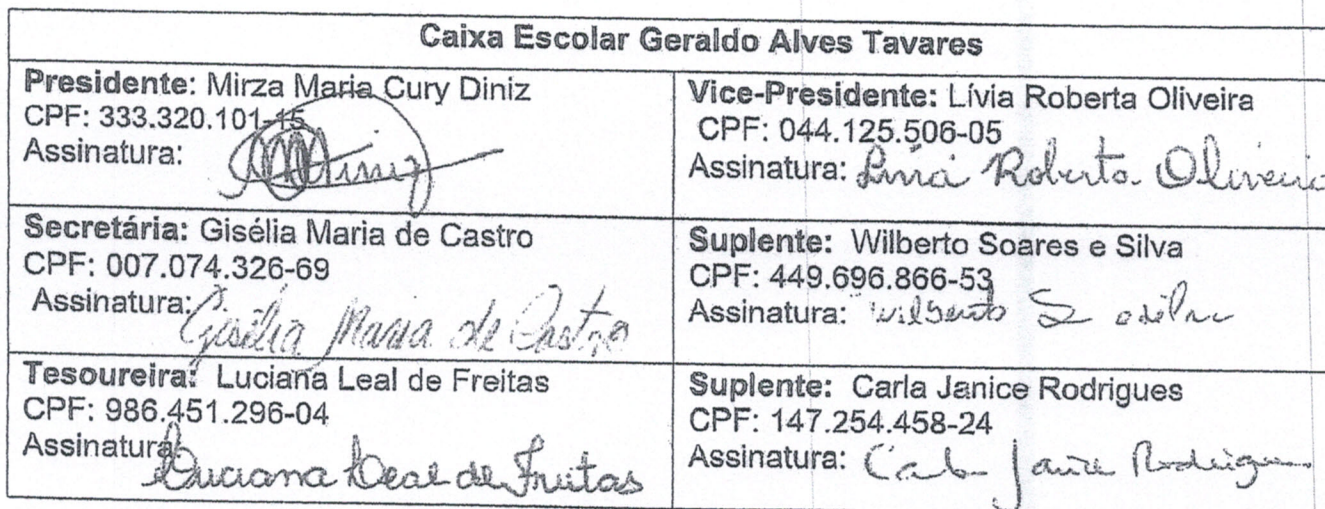 Caixa Escolar Geraldo Alves Tavares
Presidente: Mirza Maria Cury Diniz
CPF: 333.320.101-15
Assinatura: Diniz
Vice-Presidente: Lívia Roberta Oliveira
CPF: 044.125.506-05
Assinatura: Lívia Roberta Oliveira
Secretária: Gisélia Maria de Castro
CPF: 007.074.326-69
Assinatura: Gisélia Maria de Castro
Suplente: Wilberto Soares e Silva
CPF: 449.696.866-53
Assinatura: Wilberto S e Silva
Tesoureira: Luciana Leal de Freitas
CPF: 986.451.296-04
Assinatura: Luciana Leal de Freitas
Suplente: Carla Janice Rodrigues
CPF: 147.254.458-24
Assinatura: Carla Janice Rodrigues